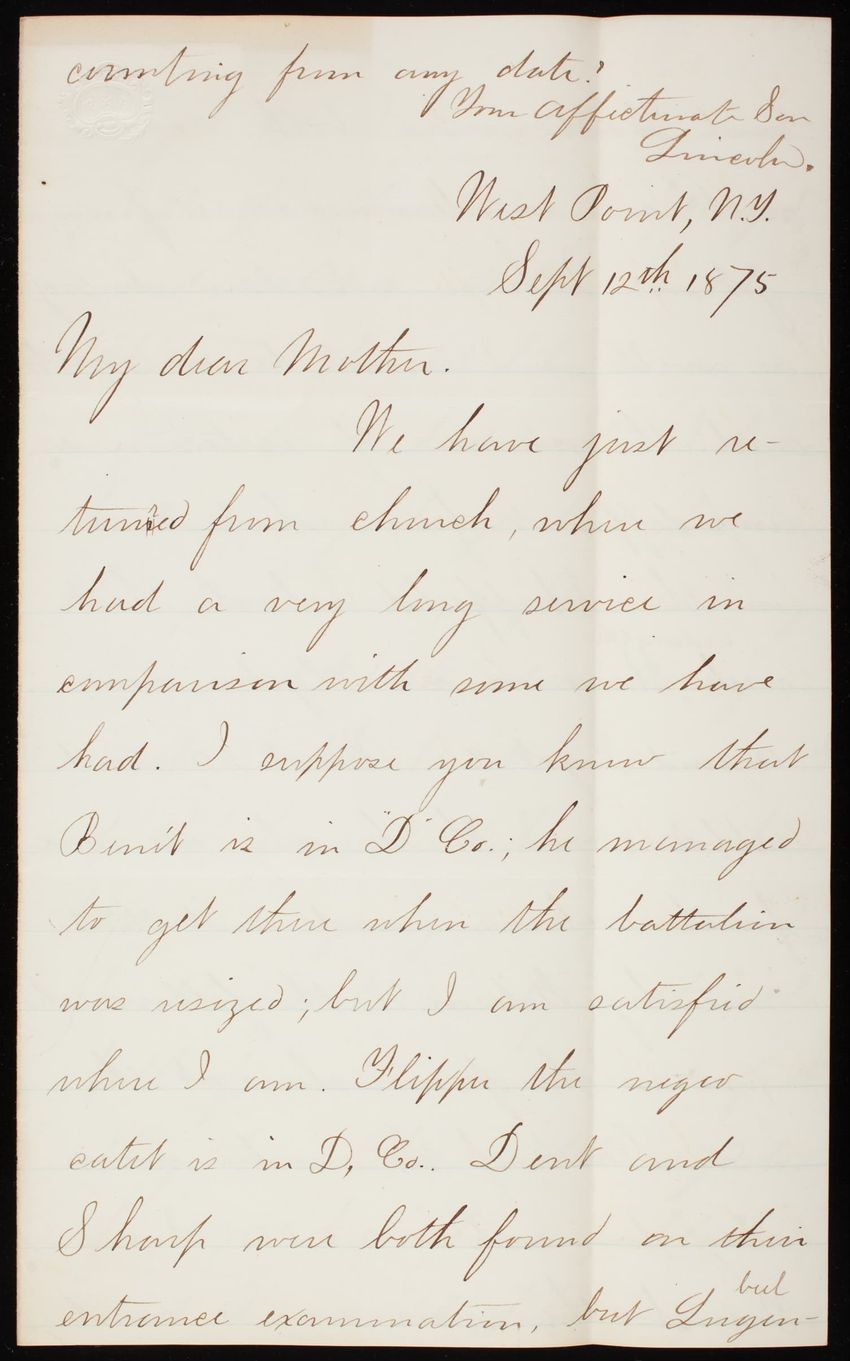 counting from any date?
Your affectionate Son
Lincoln.
West Point, N.Y.
Sept 12th 1875
My dear Mother.
We have just re-
turned from church, where we
had a very long service in
comparison with some we have
had. I suppose you know that
Benét is in "D" Co.; he managed
to get there when the battalion
was resized; but I am satisfied
where I am. Flipper the negro
cadet is in D, Co.. Dent and
Sharp were both found on their
entrance examination, but
bul